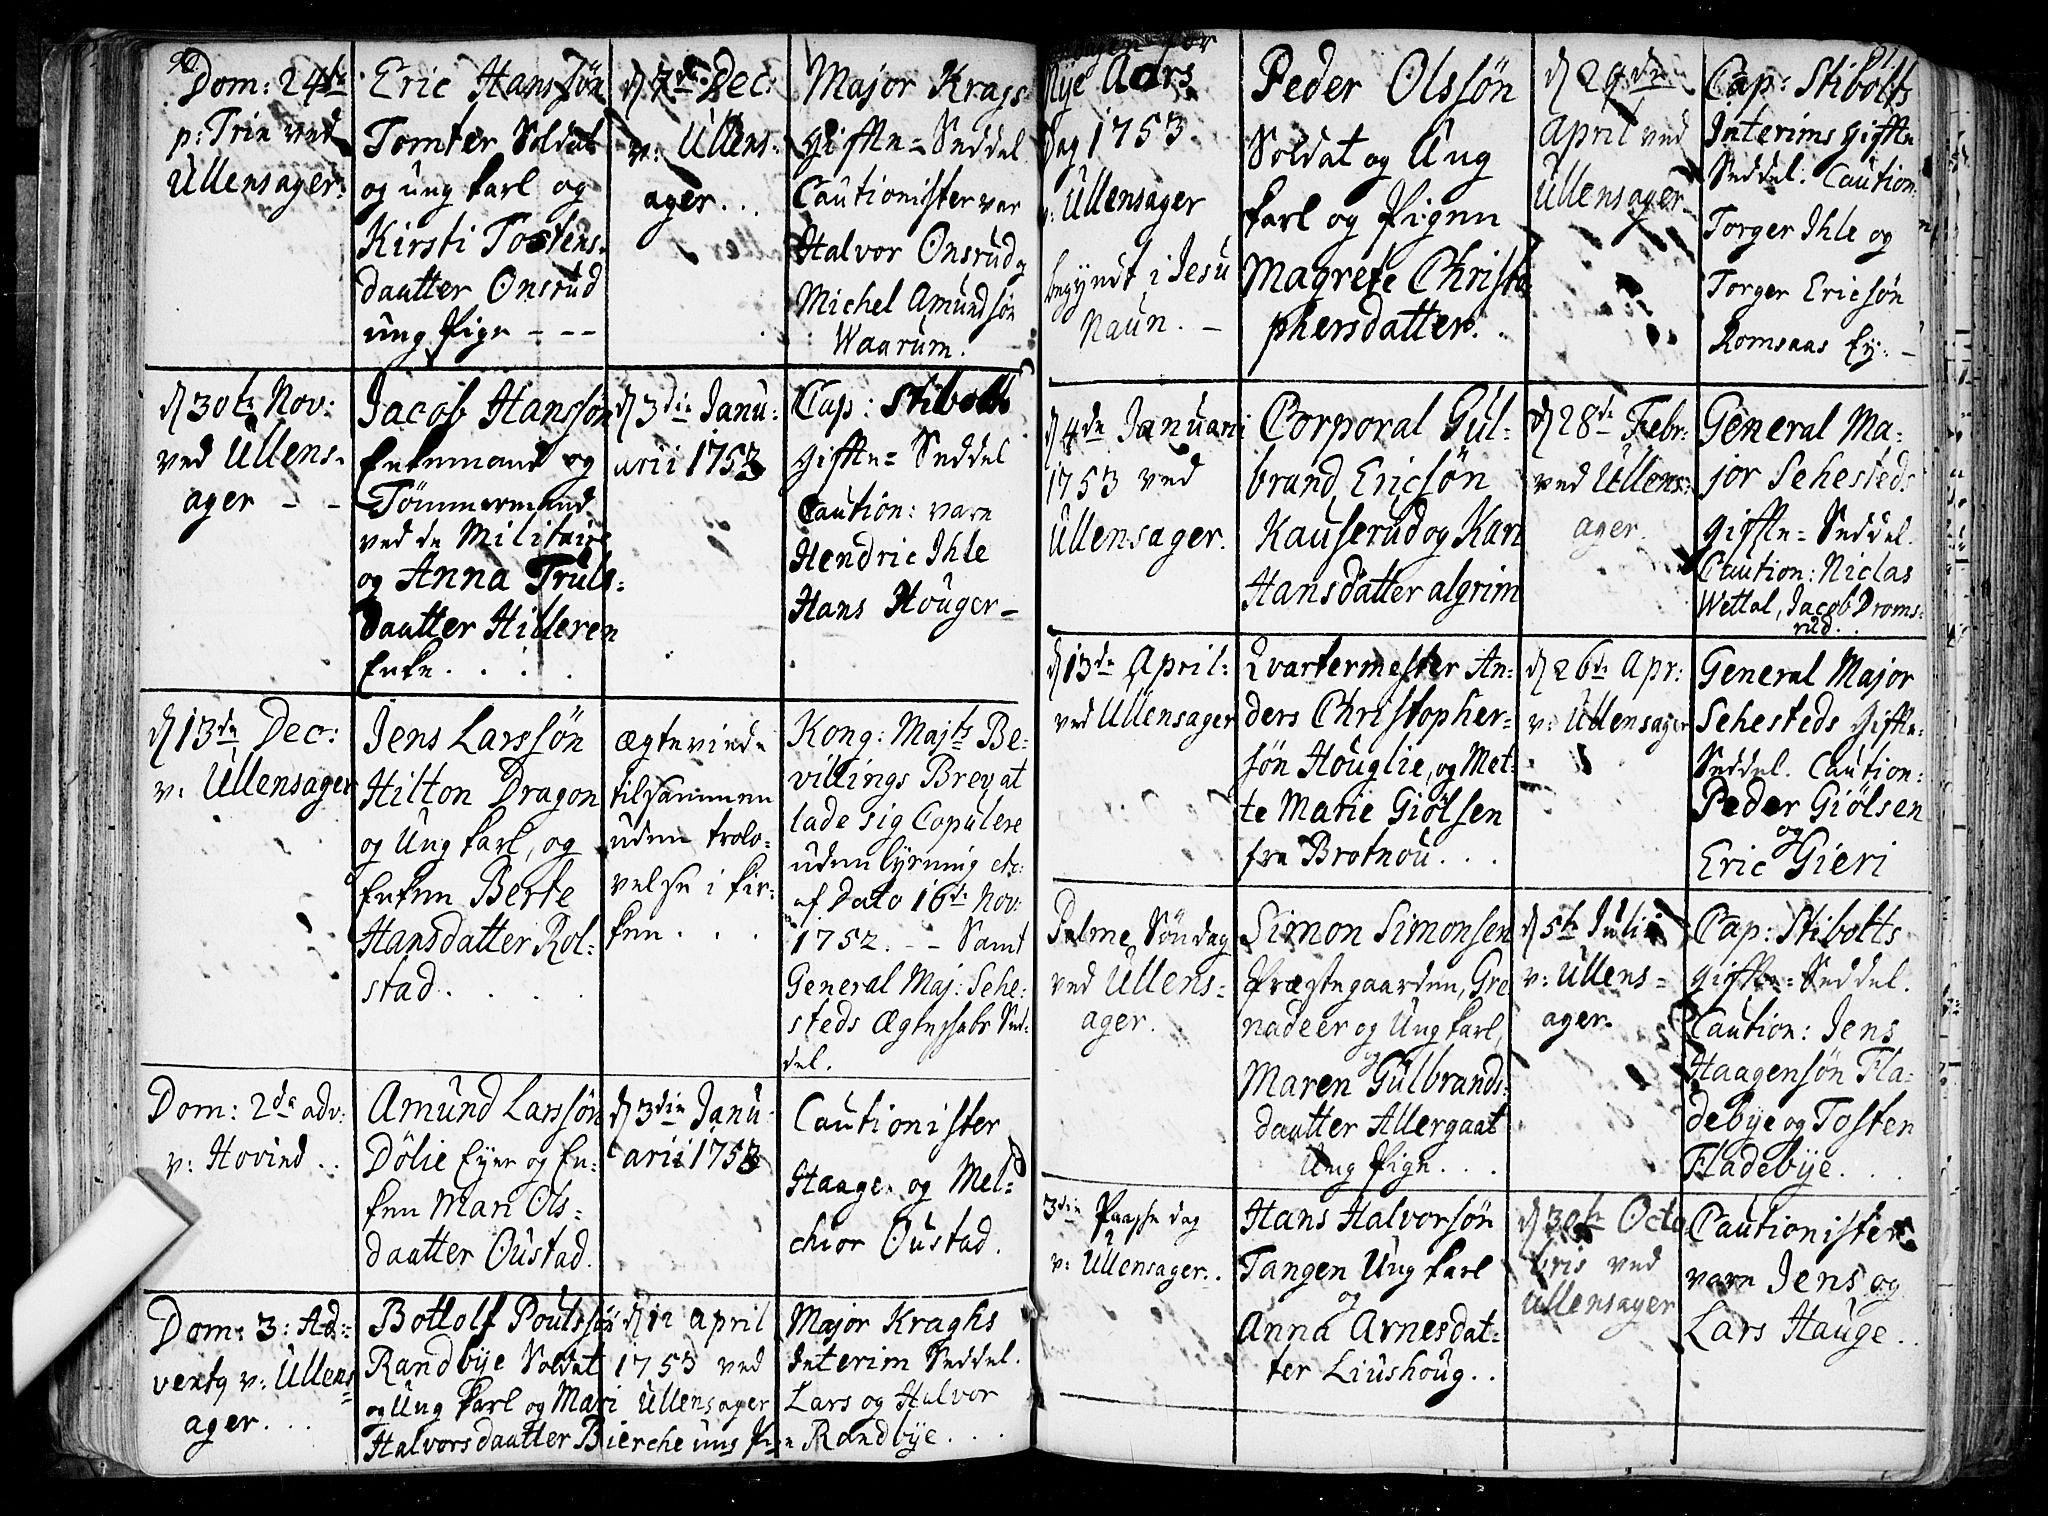 90.
Dom: 24de
p: Trin ved
Ullensager:
Eric Hanssøn
Tomter Soldat
og ung karl og
Kirsti Tostens-
daatter Onsrud
ung Pige - - -
d 7de Dec:
v: Ullens-
ager . . .
Major Krags
Giffte-Seddel
Cautionister var
Halvor Onsrud og
Michel Amundsøn
Waarum.
d 30te Nov:
ved Ullens-
ager - -
Jacob Hanssøn
Enkemand og
Tömmermand
ved de Militaire
og Anna Truls-
daatter Hilleren
Enke . . .
d 3die Janu-
arii 1753
Cap: Stibolts
Giffte-Seddel
Caution: vare
Hendric Ihle
Hans Houger -
d 13de Dec:
v: Ullensager
Jens Larssøn
Hilton Dragon
og Ung karl, og
Enken Berte
Hansdatter Rol-
stad . . .
ægteviede
tilsammen
uden trolo-
velse i kir-
ken . . .
Kong: Majts Be-
villings Brev at
lade sig Copulere
uden lysning etc:
af Dato 16de Nov:
1752. - - Samt
General Maj: Sehe-
steds Ægteskabs Sed-
del.
Dom: 2da adv:
v: Hovind . .
Amund Larssøn
Dölie Eyer og En-
ken Mari Ols-
daatter Oustad.
d 3die Janu-
arii 1753
Cautionister
Haage og Mel-
chior Oustad.
Dom: 3: Ad-
ventq v: Ullens-
ager . . .
Bottolf Poulssøn
Randbye Soldat
og Ung karl og Mari
Halvorsdaatter Bierche ung Pige
d 12 april
1753 ved
Ullensager
Major Kraghs
Interim Seddel.
Lars og Halvor
Randbye . . .
91.
for
Nye Aars
Dag 1753
v: Ullensager
begyndt i Jesu
Naun. -
Peder Olssøn
Soldat og Ung
karl og Pigen
Magrete Christo
phersdatter. .
d 29de
April ved
Ullensager
Cap: Stibolts
Interims Giffte
Seddel. Caution:
Torger Ihle og
Torger Ericsøn
Romsaas Ey: -
d 4de Januarii
1753 ved
Ullensager.
Corporal Gul-
brand Ericsøn
Kauserud og Kari
Hansdatter algrim
d 28de Febr:
ved Ullens-
ager.
General Ma-
jor Sehesteds
Giffte-Seddel.
Caution: Niclas
Wettal, Jacob Droms-
rud. .
d 13de April:
ved Ullensager
Qvartermester An-
ders Christopher-
søn Houglie, og Met-
te Marie Giölsen
fra Brotnou . . .
d 26de Apr:
v: Ullensager
General Major
Sehesteds Giffte-
Seddel. Caution:
Peder Giölsen
og
Eric Gieri
Palme Söndag
ved Ullens-
ager.
Simon Simonsen
Præstegaarden, Gre
nadeer og Ung karl,
og
Maren Gulbrands-
daatter Allergaat
Ung Pige . . .
d 5te Julii
v: Ullens-
ager.
Cap: Stibolts
Giffte-Seddel.
Caution: Jens
Haagensøn Fla-
debye og Tosten
Fladebye . .
3die Paaske dag
v: Ullensager . .
Hans Halvorsøn
Tangen Ung karl
og
Anna Arnesdat-
ter Liushoug . .
d 30te Octo
bris ved
Ullensager
Cautionister
vare Jens og
Lars Hauge . .